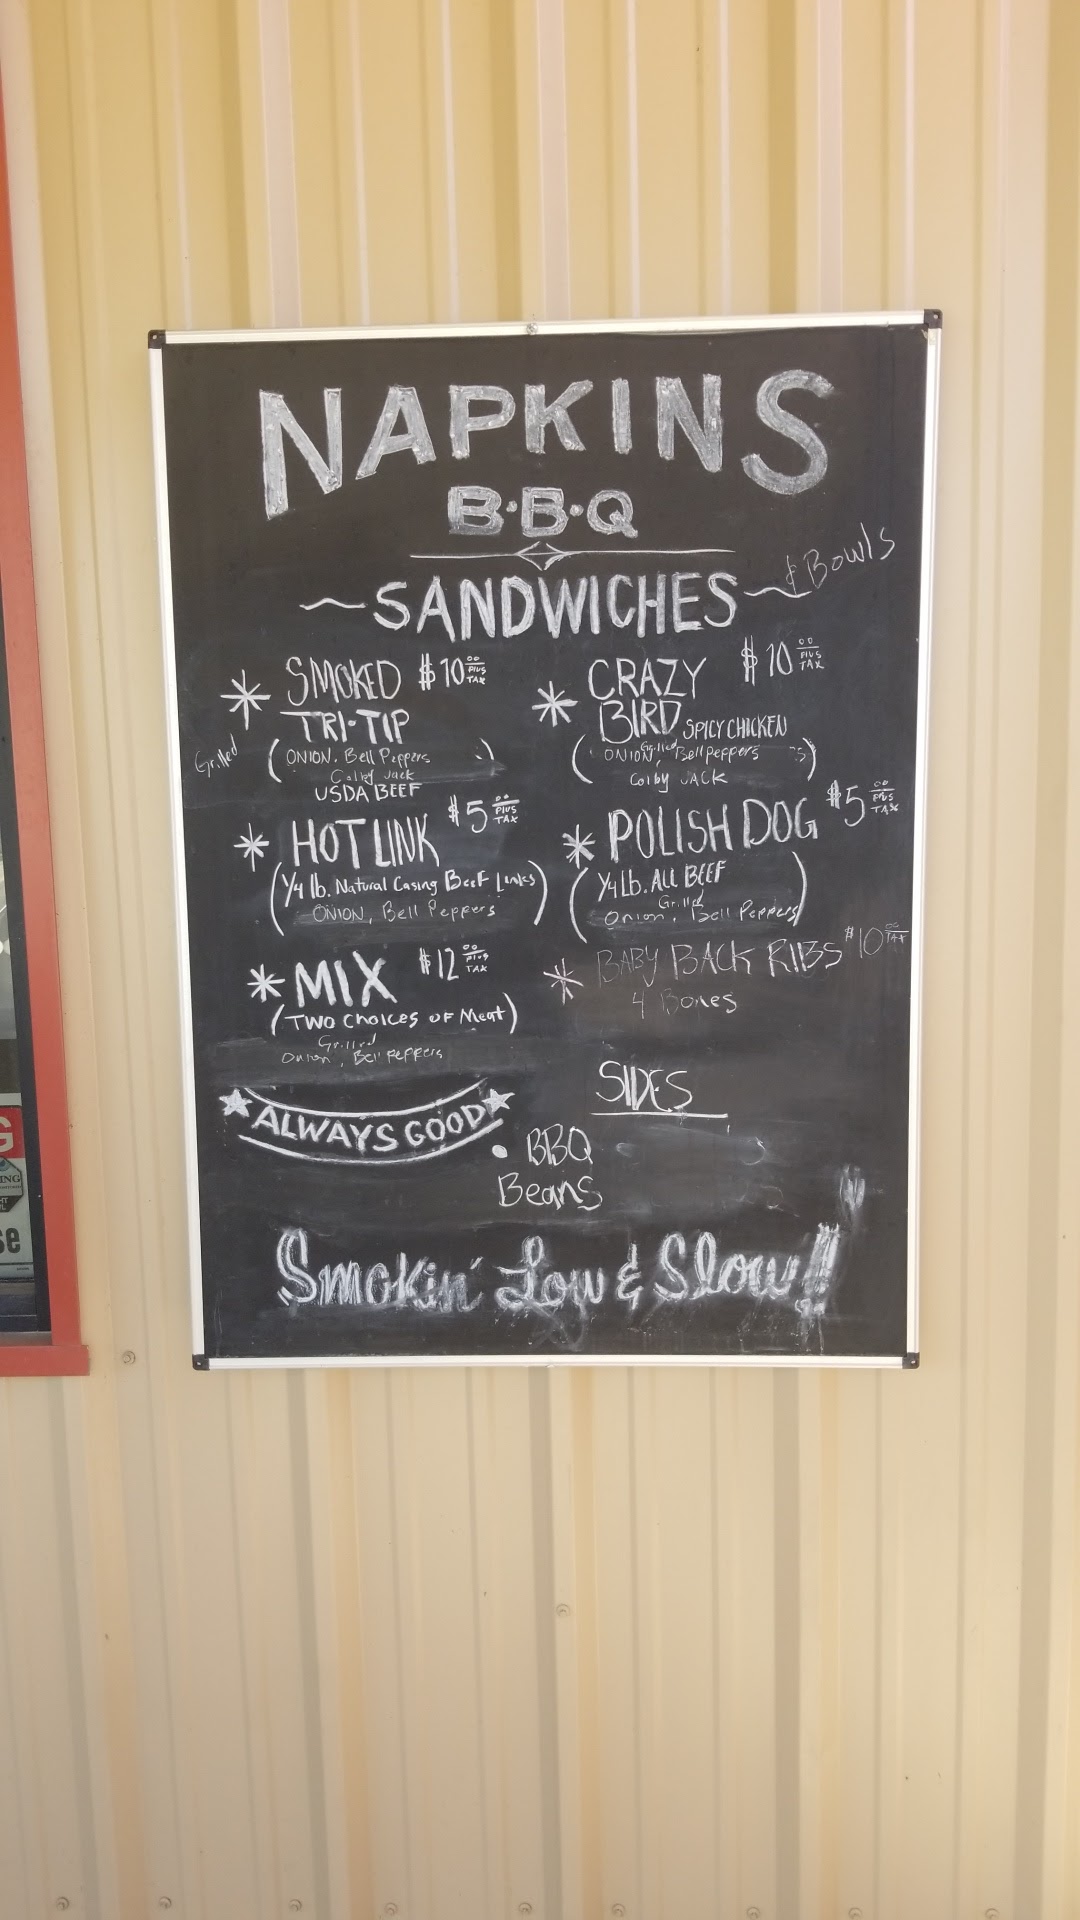 NAPKINS
B·B·Q
SANDWICHES & Bowls
SMOKED $10 00 PLUS TAX
TRI-TIP
Grilled (ONION. Bell Peppers)
Colby Jack
USDA BEEF
HOT LINK $5 00 PLUS TAX
(1/4 lb. Natural Casing Beef Links
ONION, Bell Peppers)
MIX $12 00 PLUS TAX
(TWO CHOICES OF Meat)
Grilled
Onion, Bell Peppers
ALWAYS GOOD
CRAZY $10 00 PLUS TAX
BIRD SPICY CHICKEN
(ONION, Grilled Bell peppers
Colby JACK)
POLISH DOG $5 00 PLUS TAX
(1/4 Lb. ALL BEEF
Grilled
Onion, Bell Peppers)
BABY BACK RIBS $10 00 TAX
4 Bones
SIDES
• BBQ
Beans
Smokin' Low & Slow!!
G
ING
se